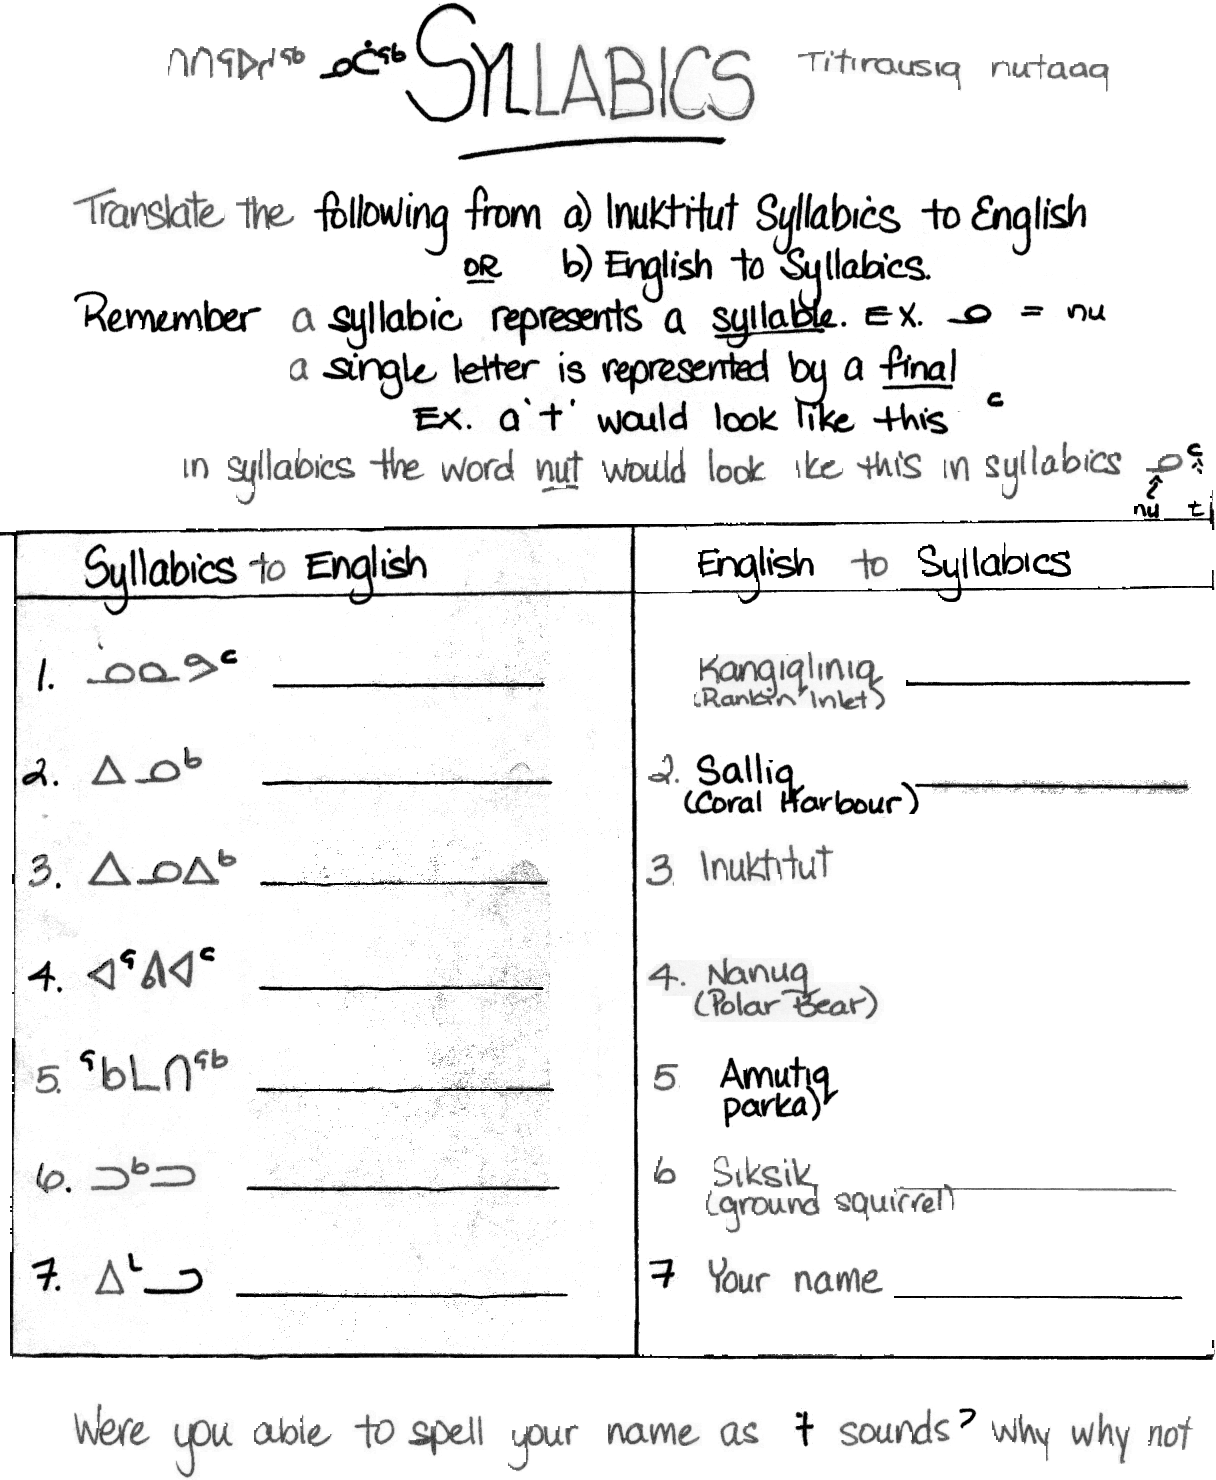 ᑎᑎᕋᐅᓯᖅ ᓄᑖᖅ SYLLABICS Titirausiq nutaaq
Translate the following from a) Inuktitut Syllabics to English
OR b) English to Syllabics.
Remember a syllabic represents a syllable. EX. ᓄ = nu
a single letter is represented by a final
EX. a 't' would look like this ᑦ
in syllabics the word nut would look ike this in syllabics ᓄᑦ
nu t
Syllabics to English
English to Syllabics
1. ᓄᓇᕗᑦ
2. ᐃᓄᒃ
3. ᐃᓄᐃᒃ
4. ᐊᕐᕕᐊᑦ
5. ᖃᒪᑎᖅ
6. ᑐᒃᑐ
7. ᐃᒡᓗ
Kangiqliniq
(Rankin Inlet)
2. Salliq
(Coral Harbour)
3 Inuktitut
4. Nanuq
(Polar Bear)
5 Amutiq
parka)
6 Siksik
(ground squirrel)
7 Your name
Were you able to spell your name as 7 sounds? Why why not